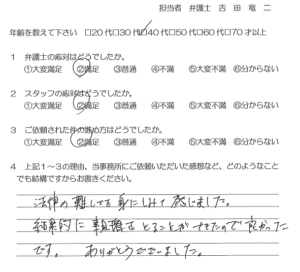 担当者 弁護士 吉田竜二
年齢を教えて下さい □20代□30代□40代□50代□60代□70才以上
1 弁護士の応対はどうでしたか。
①大変満足 ②満足 ③普通 ④不満 ⑤大変不満 ⑥分からない
2 スタッフの応対はどうでしたか。
①大変満足 ②満足 ③普通 ④不満 ⑤大変不満 ⑥分からない
3 ご依頼された件の進め方はどうでしたか。
①大変満足 ②満足 ③普通 ④不満 ⑤大変不満 ⑥分からない
4 上記1～3の理由、当事務所にご依頼いただいた感想など、どのようなこと
でも結構ですからお書きください。
法律の難しさを身にしみて感じました。
結果的に親権をとることができたので良かった
です。 ありがとうございました。